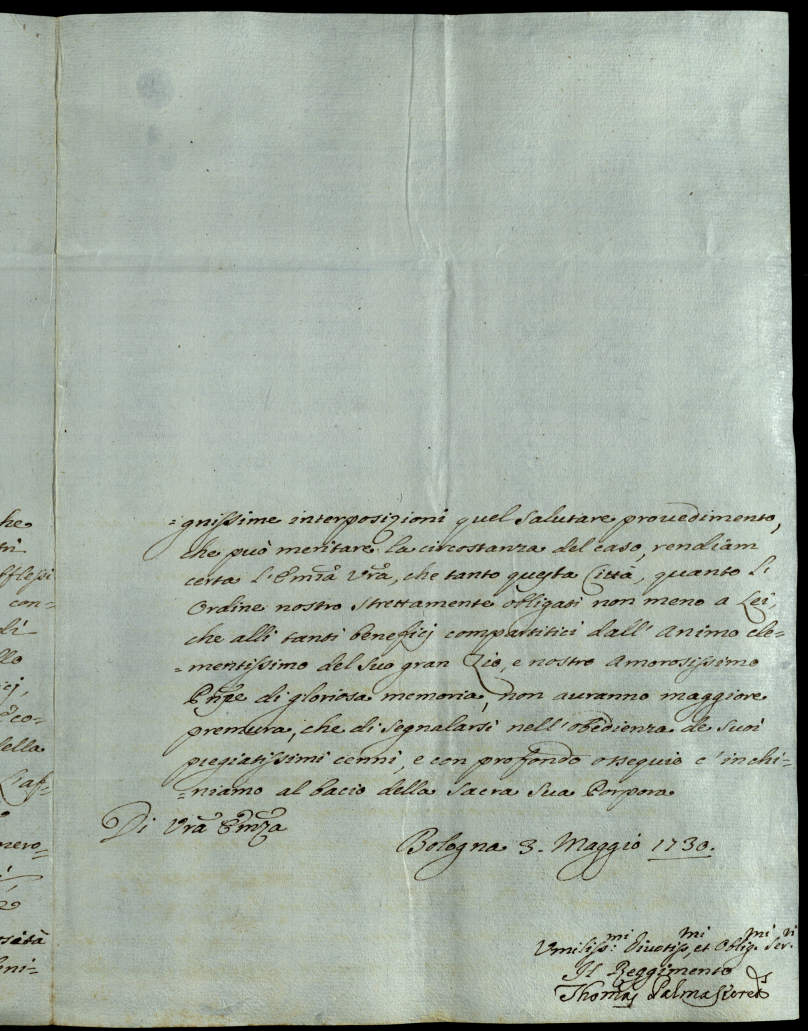 he
tri
con=
di
llo
cj,
co=
della
L'af=
nero=
sità
eni=
=gnissime interposizioni quel salutare provedimento,
che può meritare la circostanza del caso, rendiam
certa l'Emza Vrã, che tanto questa Città, quanto l'
Ordine nostro strettamente obligati non meno a Lei,
che alli tanti beneficj compartitici dall'Animo cle=
=mentissimo del suo gran Zio, e nostro Amorosissimo
Pnpe di gloriosa memoria, non auranno maggiore
premura, che di segnalarsi nell'obedienza de suoi
pregiatissimi cenni, e con profondo ossequio c'inchi=
=niamo al bacio della Sacra Sua Porpora
Di Vrã Emza
Bologna 3. Maggio 1730.
Umiliss:mi Divotiss,mi et Oblig.mi Ser.ri
Il Reggimento
Thomas Palma